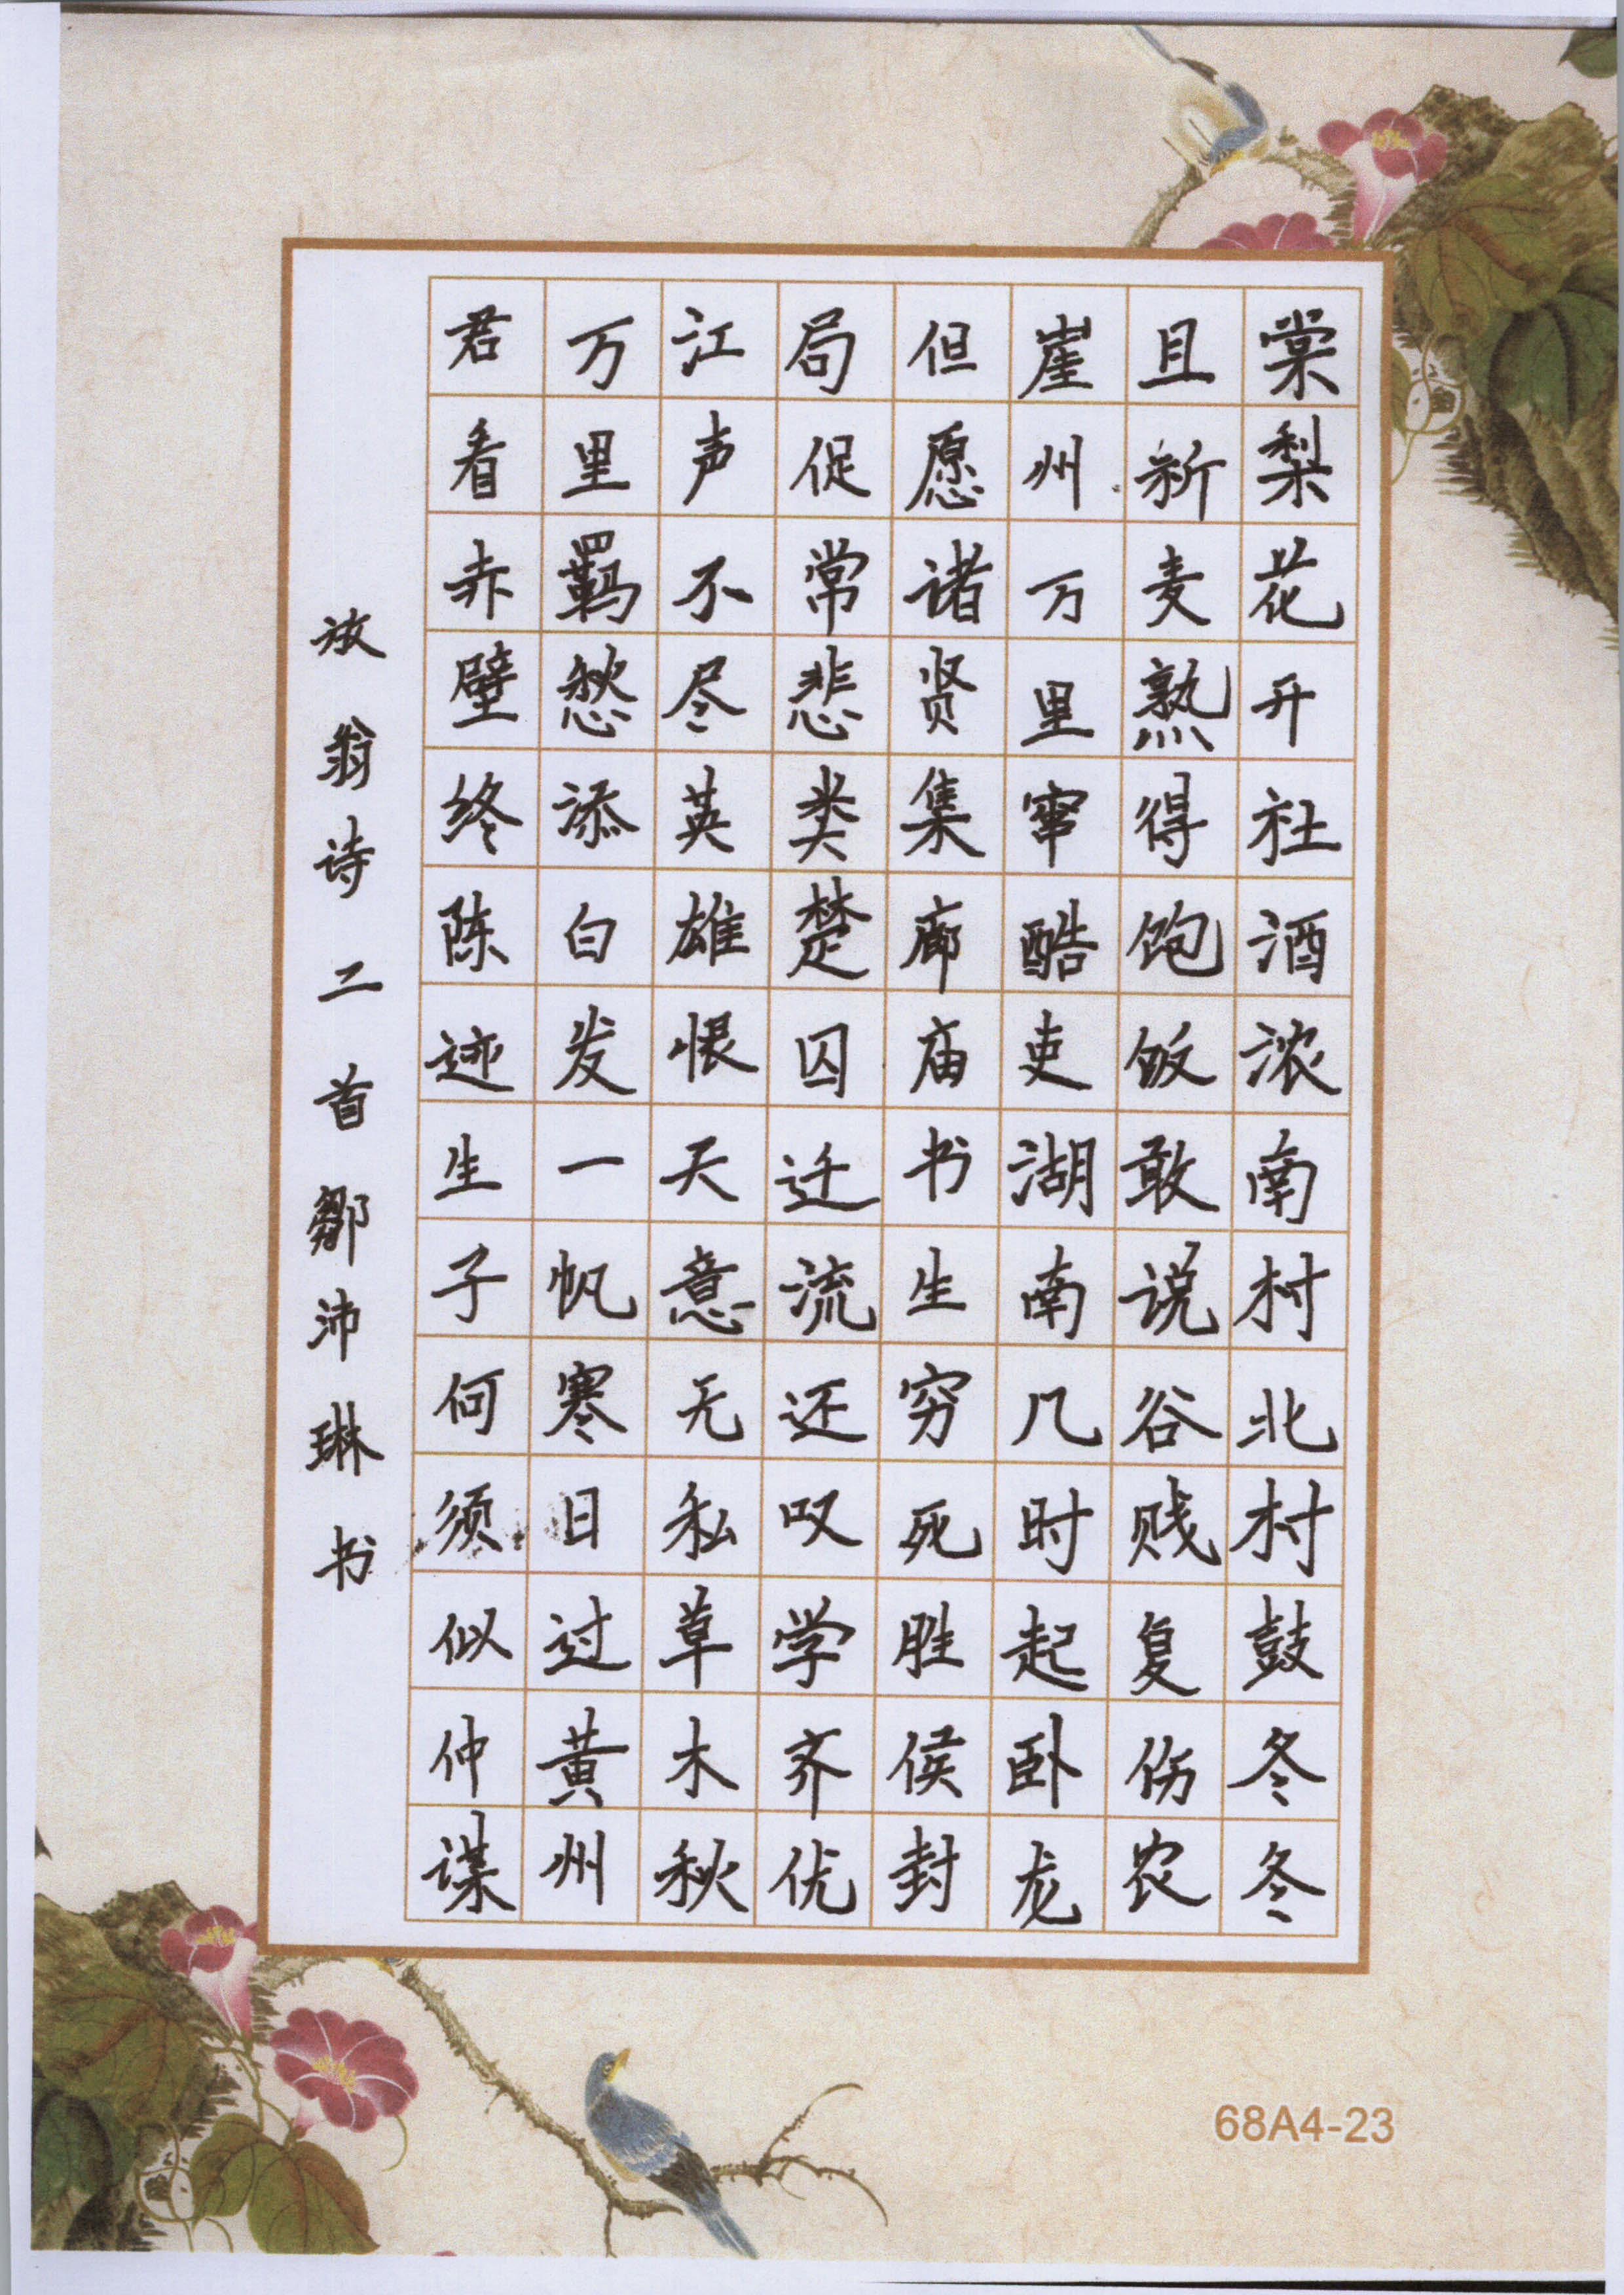 棠梨花开社酒浓南村北村鼓冬冬
且新麦熟得饱饭敢说谷贱复伤农
崖州万里窜酷吏湖南几时起卧龙
但愿诸贤集廊庙书生穷死胜侯封
局促常悲类楚囚迁流还叹学齐优
江声不尽英雄恨天意无私草木秋
万里羁愁添白发一帆寒日过黄州
君看赤壁终陈迹生子何须似仲谋
放翁诗二首邹沛琳书
68A4-23